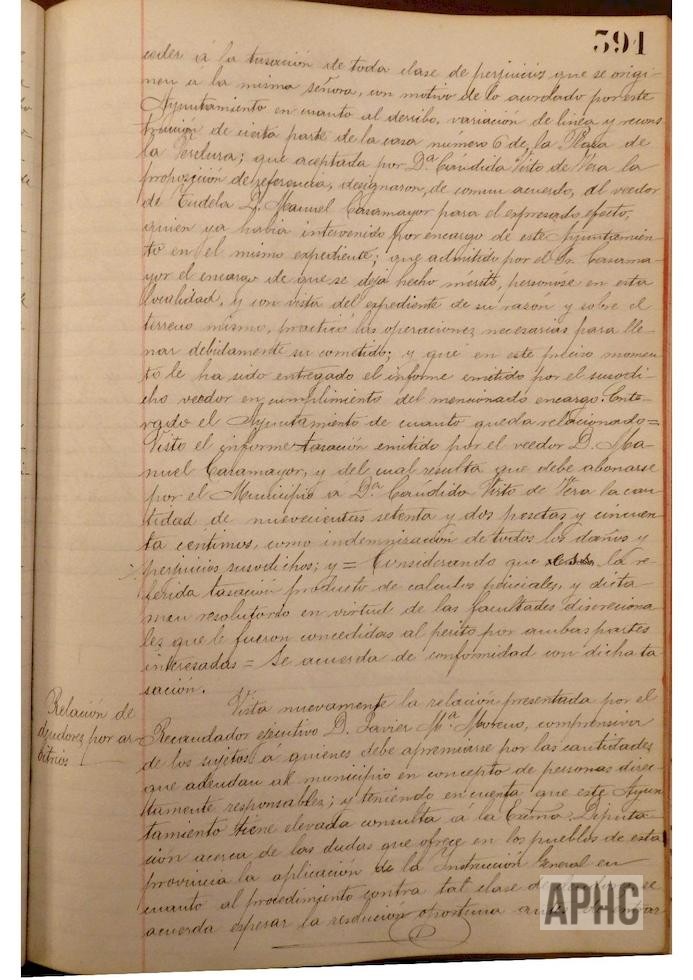 391
ceder á la tasación de toda clase de perjuicios que se origi-
nen a la misma señora, con motivo de lo acordado por este
Ayuntamiento en cuanto al derribo, variacion de línea y recons
trucción de cierta parte de la casa número 6 de la Plaza de
la Verdura; que aceptada por D.ª Cándida Visto de Vera la
proposición de referencia, designaron, de comun acuerdo, al veedor
de Tudela D. Manuel Casamayor para el expresado efecto,
quien ya había intervenido por encargo de este Ayuntamien-
to en el mismo expediente; que admitido por el Sr. Casama-
yor el encargo de que se deja hecho mérito, personóse en esta
localidad, y con vista del expediente de su razón y sobre el
terreno mismo, practicó las operaciones necesarias para lle-
nar debidamente su cometido; y que en este preciso momen
to le ha sido entregado el informe emitido por el susodi-
cho veedor en cumplimiento del mencionado encargo. Ente-
rado el Ayuntamiento de cuanto queda relacionado=
Visto el informe tasación emitido por el veedor D. Ma-
nuel Casamayor, y del cual resulta que debe abonarse
por el Municipio a D.ª Cándida Visto de Vera la can
tidad de nuevecientas setenta y dos pesetas y cincuen
ta centimos, como indemnización de todos los daños y
perjuicios susodichos; y = Considerando que la re-
ferida tasación producto de calculos periciales, y dicta-
men resolutorio en virtud de las facultades discreciona-
les que le fueron concedidas al perito por ambas partes
interesadas = Se acuerda de conformidad con dicha ta
sación.
Relación de
deudores por ar-
bitrios
Vista nuevamente la relación presentada por el
Recaudador ejecutivo D. Javier M.ª Moreno, comprensiva
de los sujetos á quienes debe apremiarse por las cantidades
que adeudan al municipio en concepto de personas direc-
tamente responsables; y teniendo en cuenta que este Ayun
tamiento tiene elevada consulta á la Excma. Diputa-
cion acerca de las dudas que ofrece en los pueblos de esta
provincia la aplicación de la Instrucción General en
cuanto al procedimiento contra tal clase de se
acuerda esperar la resolución oportuna antes de entrar
APHC